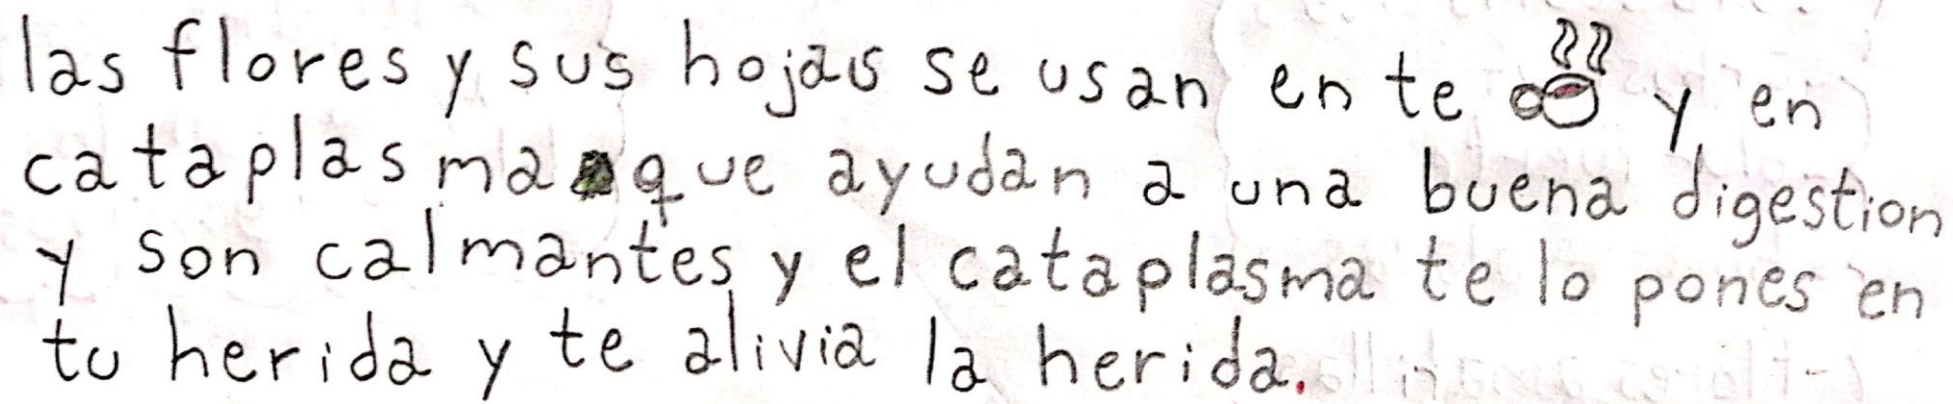 las flores y sus hojas se usan en te y en
cataplasma que ayudan a una buena digestion
y son calmantes y el cataplasma te lo pones en
tu herida y te alivia la herida.